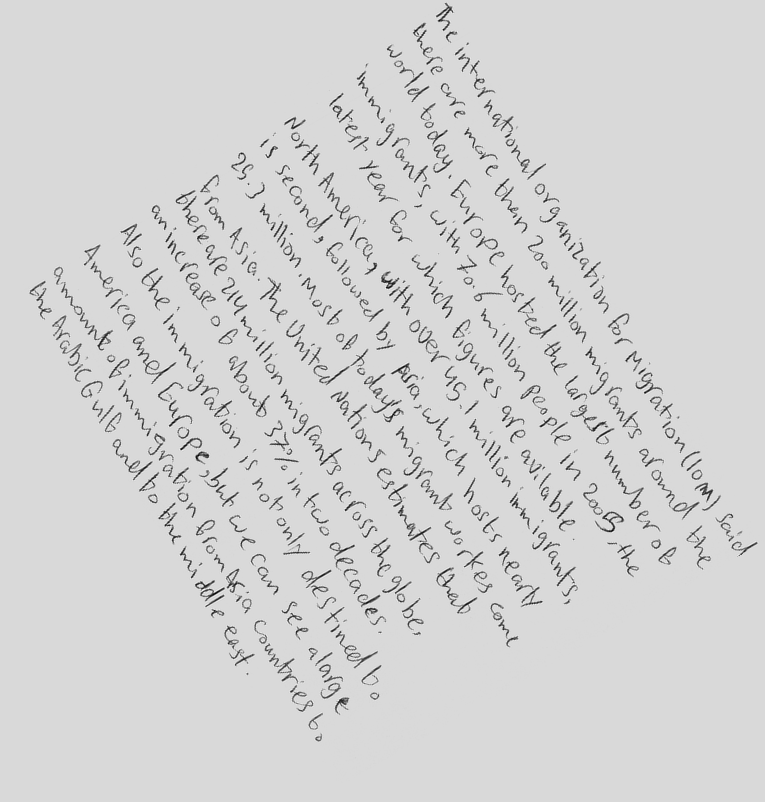 The international organization for Migration (IOM) said
there are more than 200 million migrants around the
world today. Europe hosted the largest number of
immigrants, with 70.6 million people in 2005, the
latest year for which figures are avilable.
North America, with over 45.1 million immigrants,
is second, followed by Asia, which hosts nearly
25.3 million. Most of today's migrant workes come
from Asia. The United Nations estimates that
there are 214 million migrants across the globe,
an increase of about 37% in two decades.
Also the immigration is not only destined to
America and Europe, but we can see a large
amount of immigration from Asia countries to
the Arabic Gulf and to the middle east.